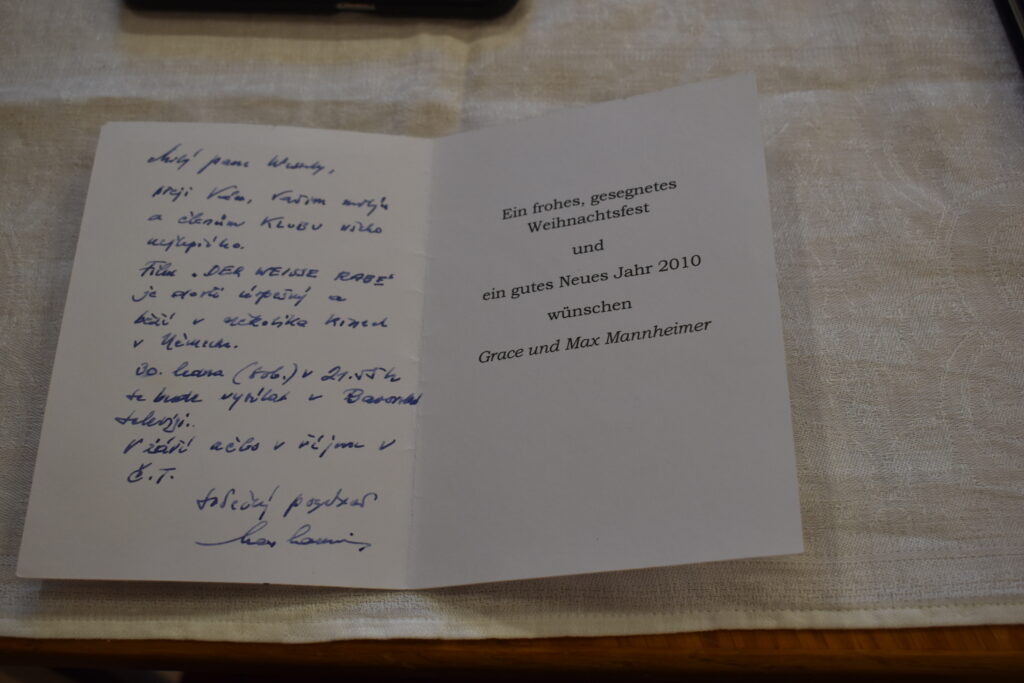 Milý pane Wesely,
přeji Vám, Vašim milým
a členům KLUBU všeho
nejlepšího.
Film „DER WEISSE RABE"
je dosti úspěšný a
běží v několika kinech
v Německu.
(sob.) v 21.55 h
se bude vysílat v Bavorské
televizi.
V září nebo v říjnu v
Č.T.
Srdečný pozdrav
Ein frohes, gesegnetes
Weihnachtsfest
und
ein gutes Neues Jahr 2010
wünschen
Grace und Max Mannheimer